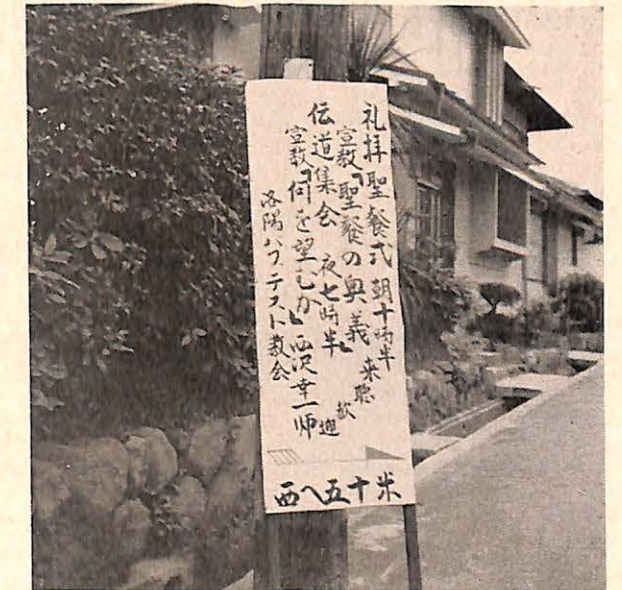 礼拝聖餐式 朝十時半
宣教『聖餐の奥義』
来聴歓迎
伝道集会 夜七時半
宣教『何を望むか』西沢幸一師
洛陽バプテスト教会
西へ五十米